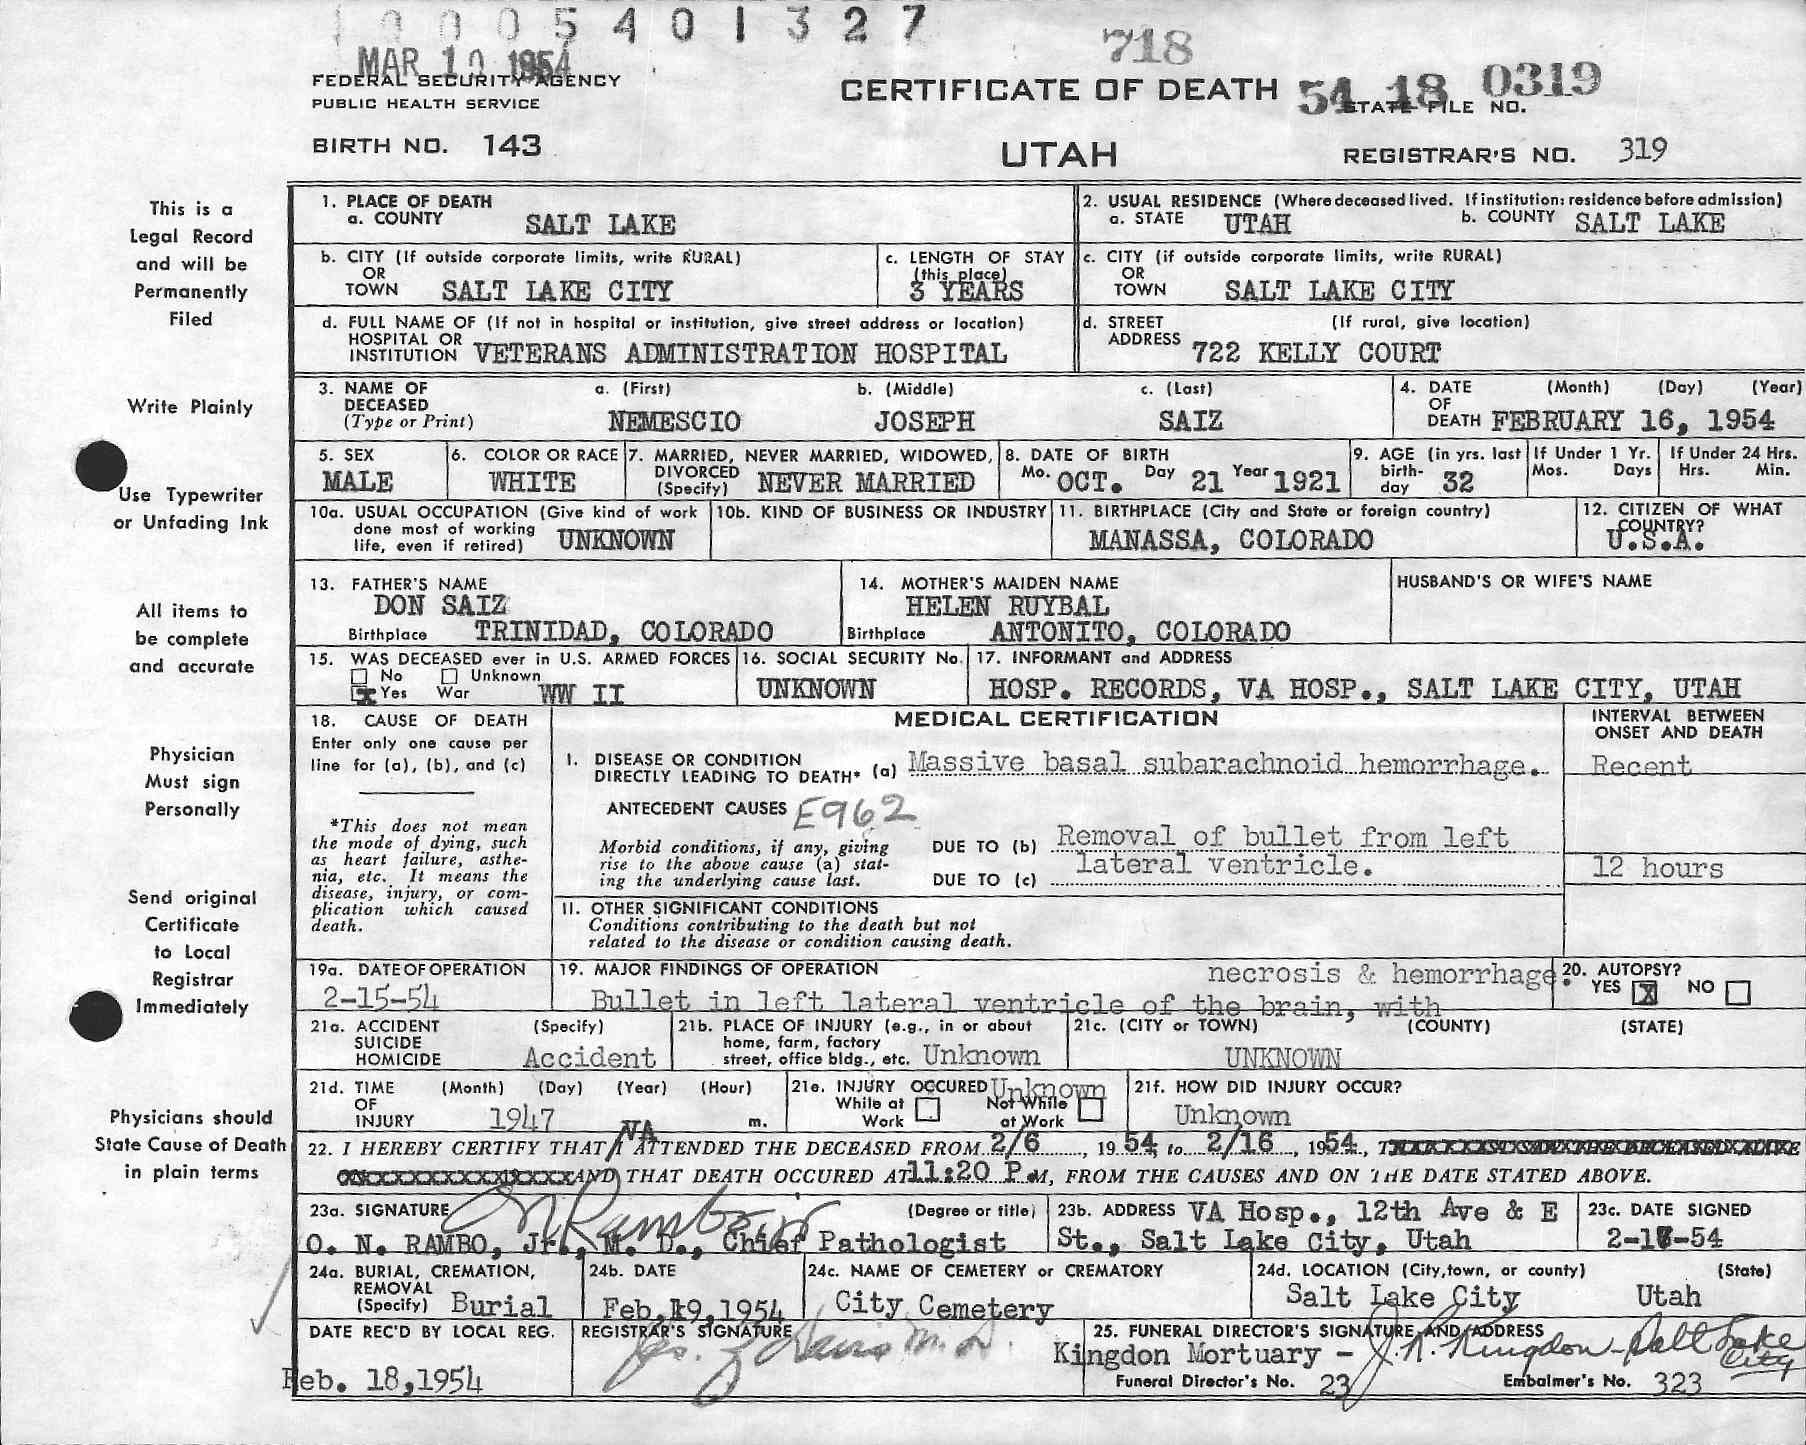 1 0 0 0 5 4 0 1 3 2 7
MAR 10 1954
718
FEDERAL SECURITY AGENCY
PUBLIC HEALTH SERVICE
CERTIFICATE OF DEATH
54 18 0319
STATE FILE NO.
BIRTH NO. 143
UTAH
REGISTRAR'S NO. 319
This is a
Legal Record
and will be
Permanently
Filed
Write Plainly
Use Typewriter
or Unfading Ink
All items to
be complete
and accurate
Physician
Must sign
Personally
Send original
Certificate
to Local
Registrar
Immediately
Physicians should
State Cause of Death
in plain terms
1. PLACE OF DEATH
a. COUNTY SALT LAKE
2. USUAL RESIDENCE (Where deceased lived. If institution: residence before admission)
a. STATE UTAH b. COUNTY SALT LAKE
b. CITY (If outside corporate limits, write RURAL)
OR
TOWN SALT LAKE CITY
c. LENGTH OF STAY
(this place)
3 YEARS
c. CITY (if outside corporate limits, write RURAL)
OR
TOWN SALT LAKE CITY
d. FULL NAME OF (If not in hospital or institution, give street address or location)
HOSPITAL OR
INSTITUTION VETERANS ADMINISTRATION HOSPITAL
d. STREET (If rural, give location)
ADDRESS 722 KELLY COURT
3. NAME OF a. (First) b. (Middle) c. (Last)
DECEASED
(Type or Print) NEMESCIO JOSEPH SAIZ
4. DATE (Month) (Day) (Year)
OF
DEATH FEBRUARY 16, 1954
5. SEX
MALE
6. COLOR OR RACE
WHITE
7. MARRIED, NEVER MARRIED, WIDOWED,
DIVORCED
(Specify) NEVER MARRIED
8. DATE OF BIRTH
Mo. OCT. Day 21 Year 1921
9. AGE (in yrs. last
birth-
day 32
If Under 1 Yr.
Mos. Days
If Under 24 Hrs.
Hrs. Min.
10a. USUAL OCCUPATION (Give kind of work
done most of working
life, even if retired) UNKNOWN
10b. KIND OF BUSINESS OR INDUSTRY
11. BIRTHPLACE (City and State or foreign country)
MANASSA, COLORADO
12. CITIZEN OF WHAT
COUNTRY?
U.S.A.
13. FATHER'S NAME
DON SAIZ
Birthplace TRINIDAD, COLORADO
14. MOTHER'S MAIDEN NAME
HELEN RUYBAL
Birthplace ANTONITO, COLORADO
HUSBAND'S OR WIFE'S NAME
15. WAS DECEASED ever in U.S. ARMED FORCES
No Unknown
x Yes War WW II
16. SOCIAL SECURITY No.
UNKNOWN
17. INFORMANT and ADDRESS
HOSP. RECORDS, VA HOSP., SALT LAKE CITY, UTAH
18. CAUSE OF DEATH
Enter only one cause per
line for (a), (b), and (c)
*This does not mean
the mode of dying, such
as heart failure, asthe-
nia, etc. It means the
disease, injury, or com-
plication which caused
death.
MEDICAL CERTIFICATION
INTERVAL BETWEEN
ONSET AND DEATH
I. DISEASE OR CONDITION
DIRECTLY LEADING TO DEATH* (a) Massive basal subarachnoid hemorrhage. Recent
ANTECEDENT CAUSES E962
Morbid conditions, if any, giving
rise to the above cause (a) stat-
ing the underlying cause last.
DUE TO (b) Removal of bullet from left
lateral ventricle. 12 hours
DUE TO (c)
II. OTHER SIGNIFICANT CONDITIONS
Conditions contributing to the death but not
related to the disease or condition causing death.
19a. DATE OF OPERATION
2-15-54
19. MAJOR FINDINGS OF OPERATION necrosis & hemorrhage.
Bullet in left lateral ventricle of the brain, with
20. AUTOPSY?
YES X NO
21a. ACCIDENT (Specify)
SUICIDE
HOMICIDE Accident
21b. PLACE OF INJURY (e.g., in or about
home, farm, factory
street, office bldg., etc. Unknown
21c. (CITY or TOWN) (COUNTY) (STATE)
UNKNOWN
21d. TIME (Month) (Day) (Year) (Hour)
OF
INJURY 1947 m.
21e. INJURY OCCURED Unknown
While at Not While
Work at Work
21f. HOW DID INJURY OCCUR?
Unknown
VA
22. I HEREBY CERTIFY THAT I ATTENDED THE DECEASED FROM 2/6, 1954, to 2/16, 1954,
AND THAT DEATH OCCURED AT 11:20 P.M, FROM THE CAUSES AND ON THE DATE STATED ABOVE.
23a. SIGNATURE (Degree or title)
O. N. RAMBO, Jr., M. D., Chief Pathologist
23b. ADDRESS VA Hosp., 12th Ave & E
St., Salt Lake City, Utah
23c. DATE SIGNED
2-17-54
24a. BURIAL, CREMATION,
REMOVAL
(Specify) Burial
24b. DATE
Feb. 19, 1954
24c. NAME OF CEMETERY or CREMATORY
City Cemetery
24d. LOCATION (City, town, or county) (State)
Salt Lake City Utah
DATE REC'D BY LOCAL REG.
Feb. 18, 1954
REGISTRAR'S SIGNATURE
25. FUNERAL DIRECTOR'S SIGNATURE AND ADDRESS
Kingdon Mortuary - J. R. Kingdon - Salt Lake
City
Funeral Director's No. 23 Embalmer's No. 323